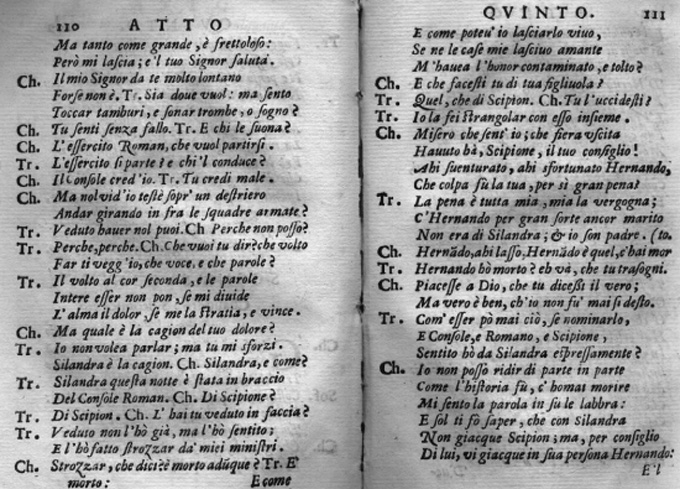 110 ATTO
Ma tanto come grande, è frettoloso:
Però mi lascia; e'l tuo Signor saluta.
Ch. Il mio Signor da te molto lontano
Forse non è. Tr. Sia doue vuol: ma sento
Toccar tamburi, e sonar trombe, o sogno?
Ch. Tu senti senza fallo. Tr. E chi le suona?
Ch. L'essercito Roman, che vuol partirsi.
Tr. L'essercito si parte? e chi'l conduce?
Ch. Il Console cred'io. Tr. Tu credi male.
Ch. Ma nol vid'io testè sopr'un destriero
Andar girando in fra le squadre armate?
Tr. Veduto hauer nol puoi. Ch Perche non posso?
Tr. Perche, perche. Ch. Che vuoi tu dir? che volto
Far ti vegg'io, che voce, e che parole?
Tr. Il volto al cor seconda, e le parole
Intere esser non pon, se mi diuide
L'alma il dolor, se me la stratia, e vince.
Ch. Ma quale è la cagion del tuo dolore?
Tr. Io non volea parlar; ma tu mi sforzi.
Silandra è la cagion. Ch. Silandra, e come?
Tr. Silandra questa notte è stata in braccio
Del Console Roman. Ch. Di Scipione?
Tr. Di Scipion. Ch. L'hai tu veduto in faccia?
Tr. Veduto non l'hò già, ma l'hò sentito;
E l'hò fatto strozzar da' miei ministri.
Ch. Strozzar, che dici? è morto adũque? Tr. E'
morto: E come
QVINTO. 111
E come poteu'io lasciarlo viuo,
Se ne le case mie lasciuo amante
M'hauea l'honor contaminato, e tolto?
Ch. E che facesti tu di tua figliuola?
Tr. Quel, che di Scipion. Ch. Tu l'uccidesti?
Tr. Io la fei strangolar con esso insieme.
Ch. Misero che sent'io; che fiera vscita
Hauuto bà, Scipione, il tuo consiglio!
Ahi suenturato, ahi sfortunato Hernando,
Che colpa fù la tua, per sì gran pena?
Tr. La pena è tutta mia, mia la vergogna;
C'Hernando per gran sorte ancor marito
Non era di Silandra; & io son padre. (to.
Ch. Hernãdo, ahi lasso, Hernãdo è quel, c'hai mor
Tr. Hernando hò morto? eh và, che tu trasogni.
Ch. Piacesse a Dio, che tu dicessi il vero;
Ma vero è ben, ch'io non fu' mai sì desto.
Tr. Com'esser pò mai ciò, se nominarlo,
E Console, e Romano, e Scipione,
Sentito hò da Silandra espressamente?
Ch. Io non posso ridir di parte in parte
Come l'historia fù, c'homai morire
Mi sento la parola in su le labbra:
E sol ti fò saper, che con Silandra
Non giacque Scipion; ma, per consiglio
Di lui, vi giacque in sua persona Hernando:
E'l